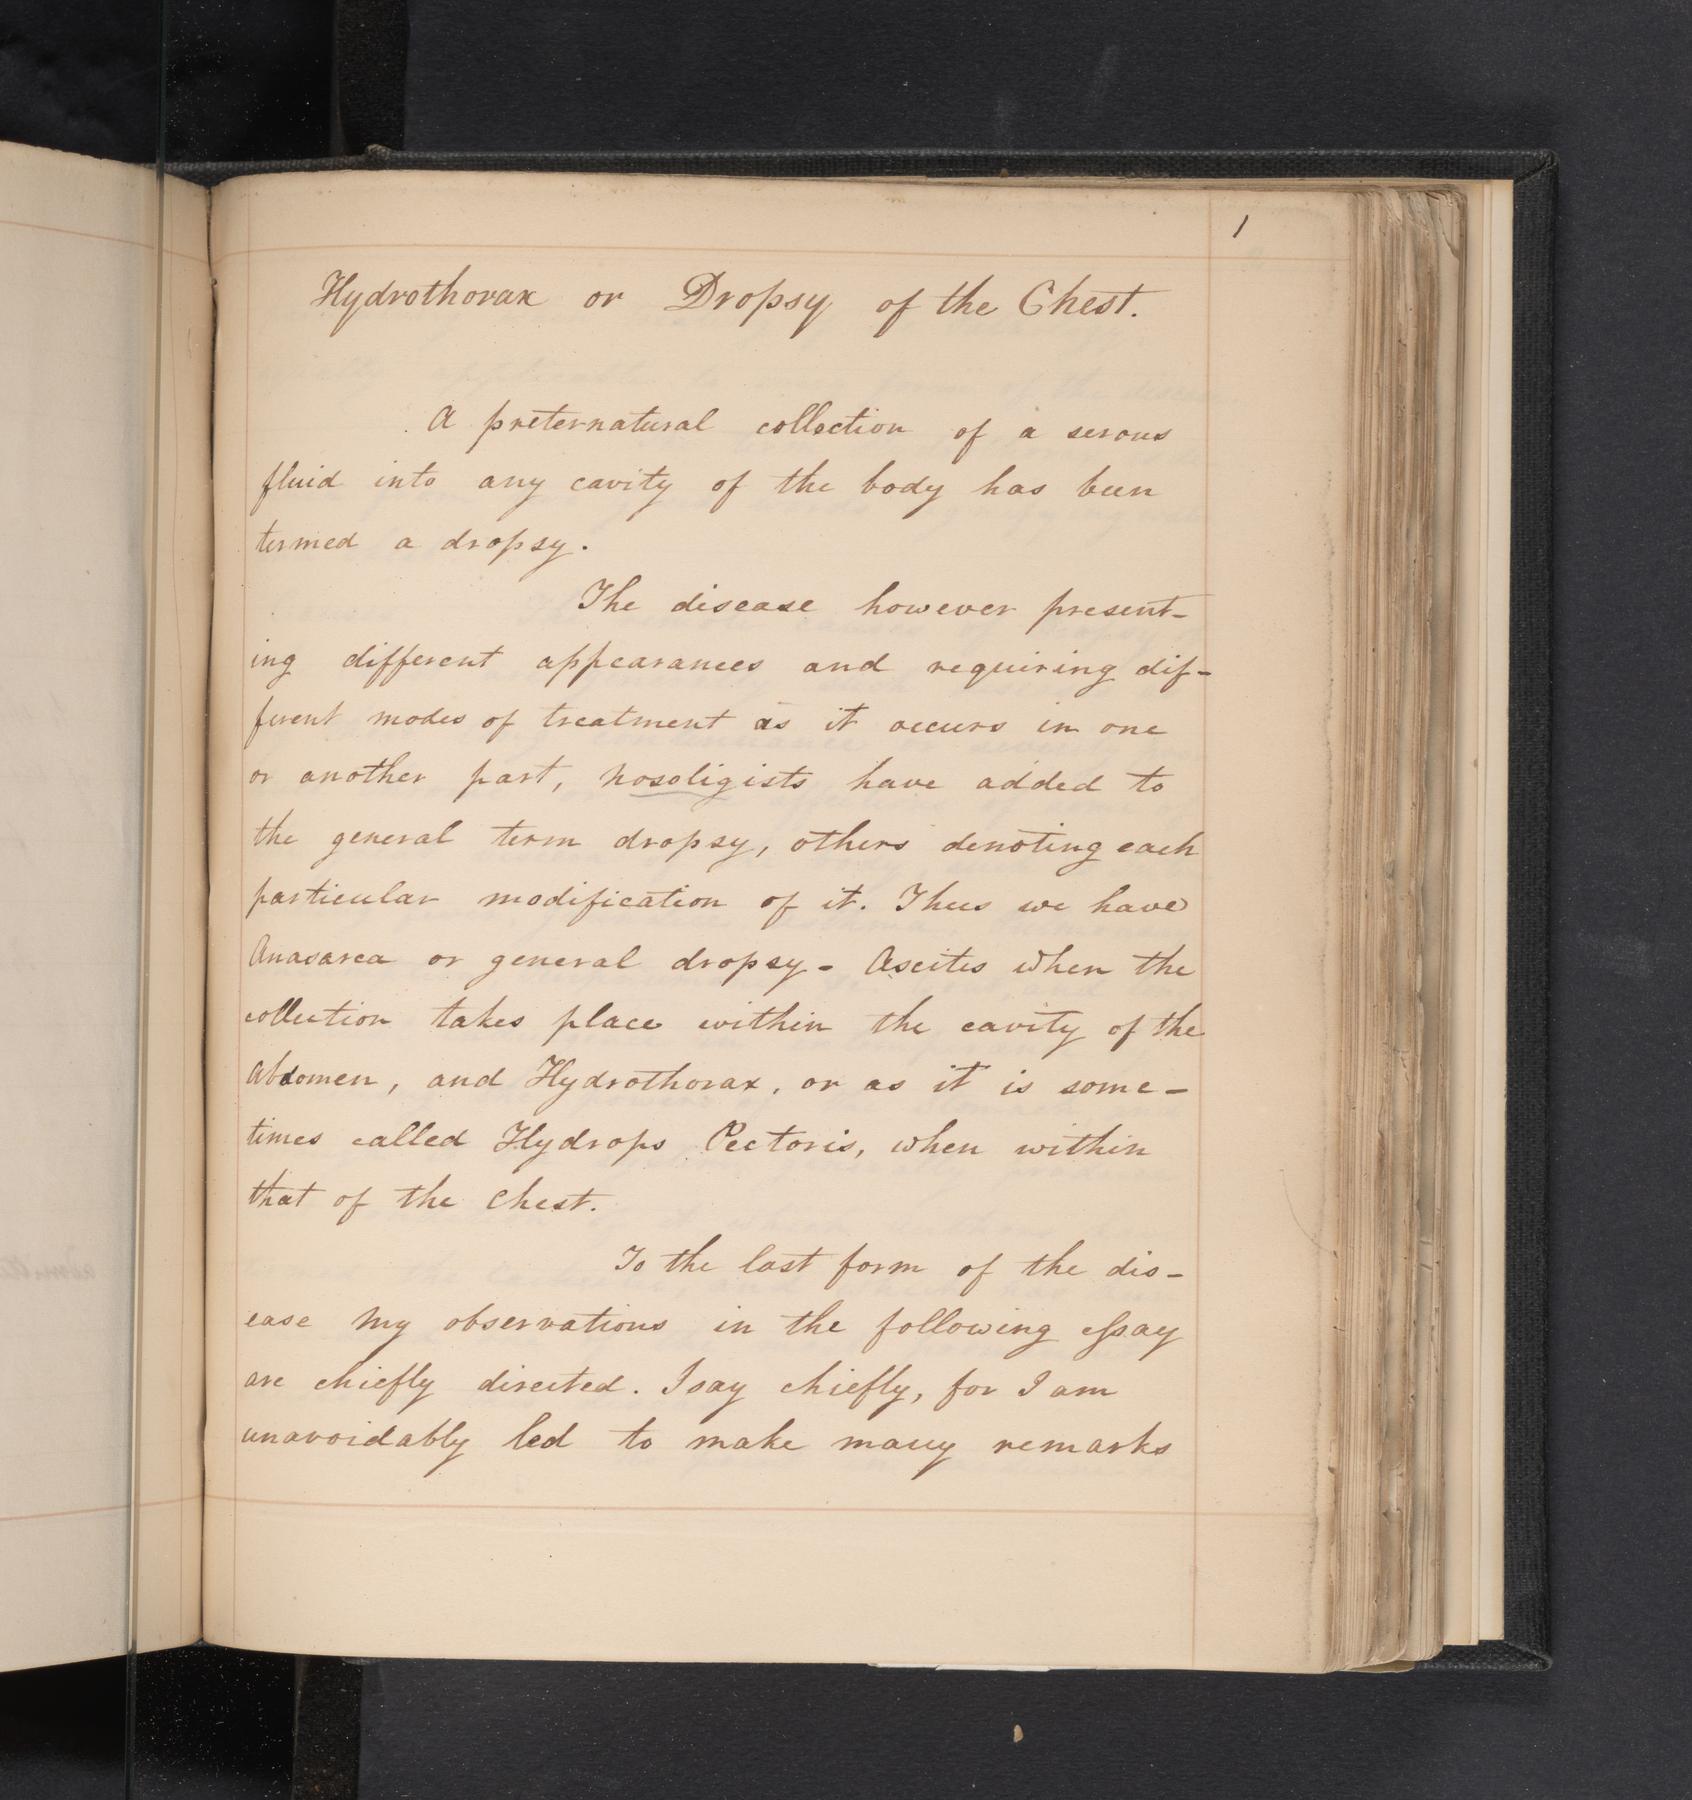 1
Hydrothorax or Dropsy of the Chest.
A preternatural collection of a serous
fluid into any cavity of the body has been
termed a dropsy.
The disease however present-
ing different appearances and requiring dif-
ferent modes of treatment as it occurs in one
or another part, nosoligists have added to
the general term dropsy, others denoting each
particular modification of it. Thus we have
Anasarca or general dropsy - Ascites when the
collection takes place within the cavity of the
Abdomen, and Hydrothorax, or as it is some-
times called Hydrops Pectoris, when within
that of the Chest.
To the last form of the dis-
ease my observations in the following essay
are chiefly directed. I say chiefly, for I am
unavoidably led to make many remarks